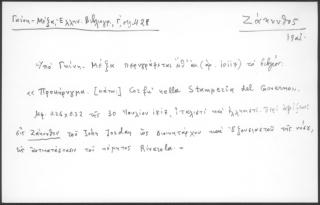 Γκίνη - Μέξα, Ἑλλην. Βιβλιογρ., Γ', σ. 428
Ζάκυνθος
Ὑπὸ Γκίνη - Μέξα περιγράφεται (ἀρ. 10117) τὸ
« Προκήρυγμα. [κάτω:] Corfù nella Stamperia del Governo.
Μφ. 426x032 τῆς 30 Ἰουλίου 1817, Ἰταλιστὶ καὶ ἑλληνιστί. Περὶ ἀφίξεως
εἰς Ζάκυνθον τοῦ John Jordan ὡς Διοικητάρχου καὶ Ἐξουσιαστοῦ τῆς νήσου,
εἰς ἀντικατάστασιν τοῦ κόμητος Riverola »